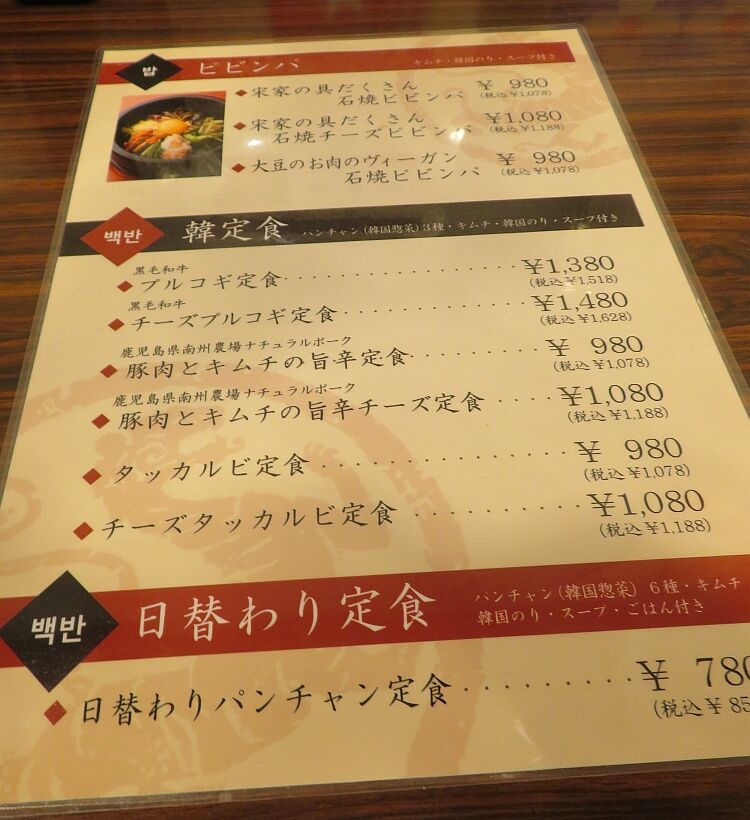 밥 ビビンバ キムチ・韓国のり・スープ付き
◆宋家の具だくさん ¥ 980
石焼ビビンバ (税込¥1,078)
◆宋家の具だくさん ¥1,080
石焼チーズビビンバ (税込¥1,188)
◆大豆のお肉のヴィーガン ¥ 980
石焼ビビンバ (税込¥1,078)
백반 韓定食 パンチャン(韓国惣菜)3種・キムチ・韓国のり・スープ付き
黒毛和牛
◆プルコギ定食 ¥1,380
(税込¥1,518)
黒毛和牛
◆チーズプルコギ定食 ¥1,480
(税込¥1,628)
鹿児島県南州農場ナチュラルポーク
◆豚肉とキムチの旨辛定食 ¥ 980
(税込¥1,078)
鹿児島県南州農場ナチュラルポーク
◆豚肉とキムチの旨辛チーズ定食 ¥1,080
(税込¥1,188)
◆タッカルビ定食 ¥ 980
(税込¥1,078)
◆チーズタッカルビ定食 ¥1,080
(税込¥1,188)
백반 日替わり定食 パンチャン(韓国惣菜) 6種・キムチ
韓国のり・スープ・ごはん付き
◆日替わりパンチャン定食 ¥ 780
(税込¥85